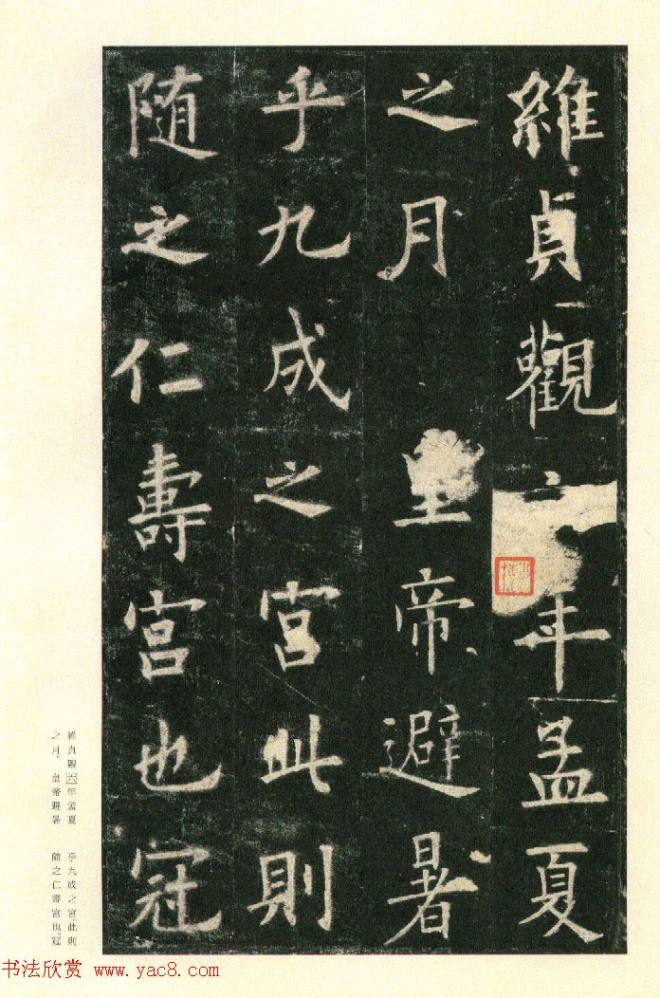 維貞觀六年孟夏
之月 皇帝避暑
乎九成之宮此則
随之仁壽宮也冠
維貞觀六年孟夏
之月。皇帝避暑
乎九成之宮。此則
隨之仁壽宮也。冠
书法欣赏 www.yac8.com